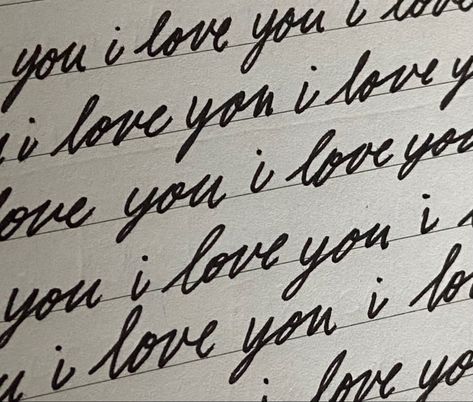 you i love you i love
i love you i love y
love you i love you
you i love you i
u i love you i lo
i love yo